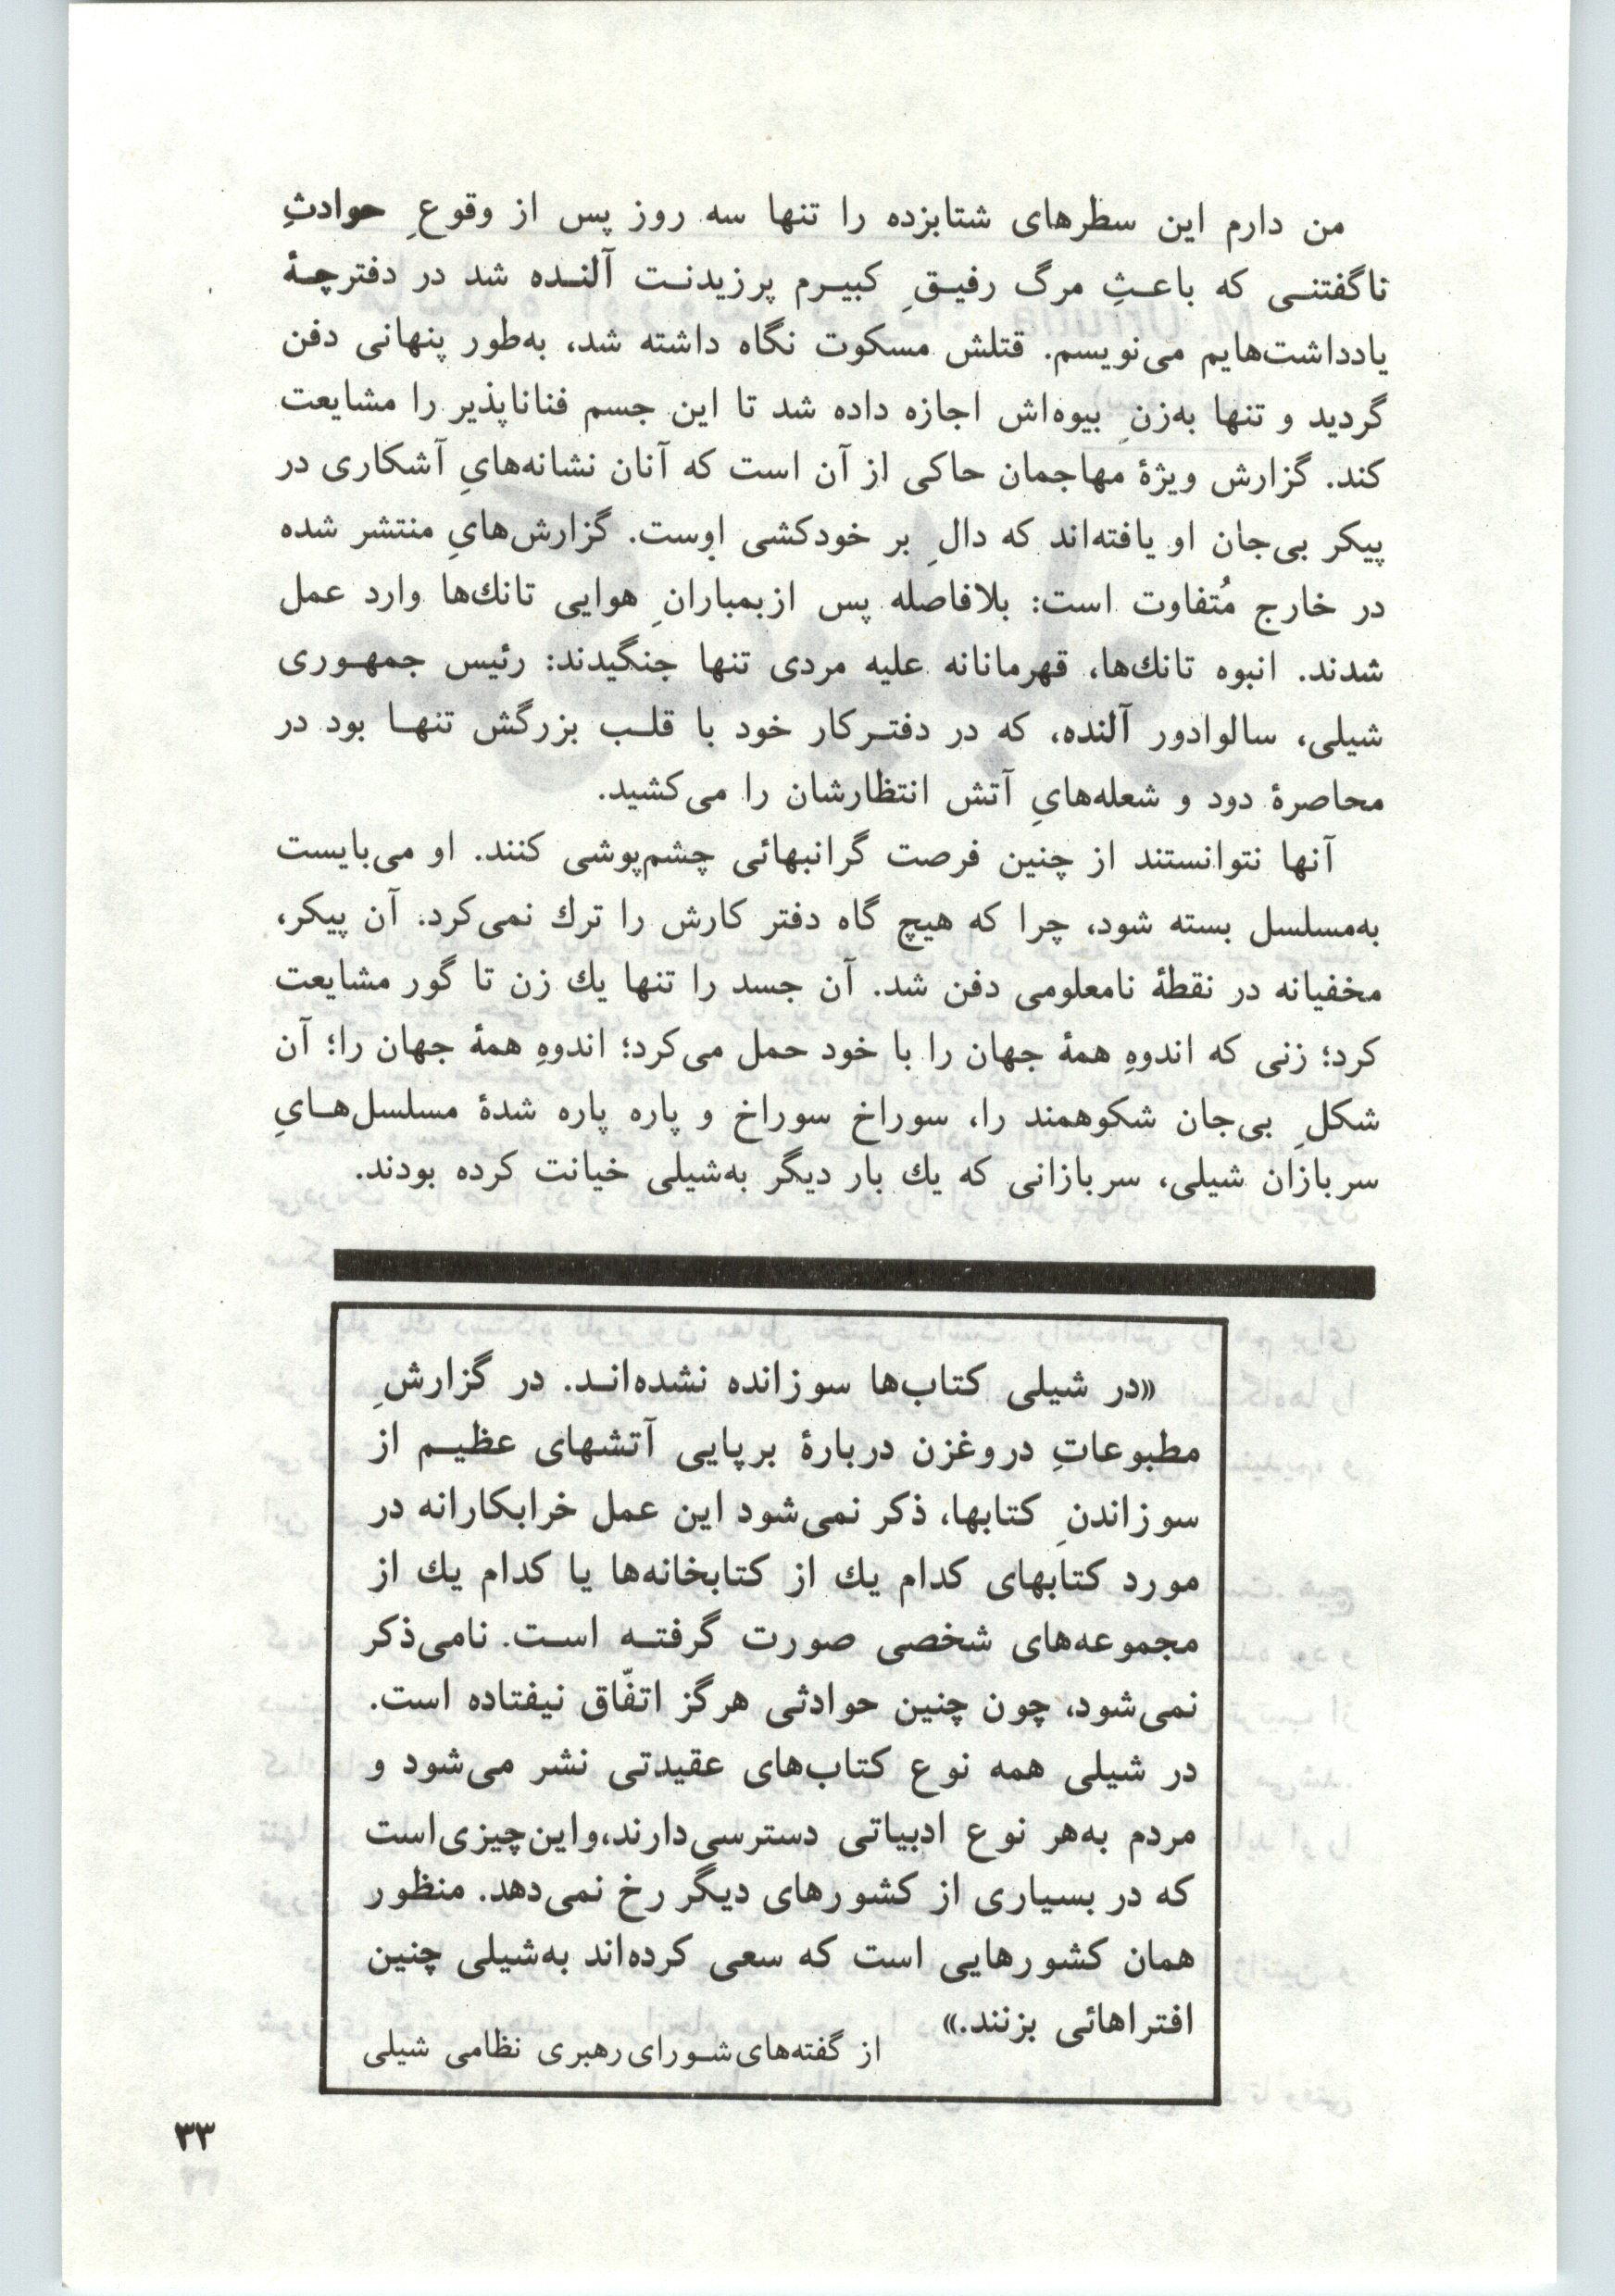 من دارم این سطرهای شتابزده را تنها سه روز پس از وقوعِ حوادثِ
ناگفتنی که باعثِ مرگ رفیقِ کبیرم پرزیدنت آلنده شد در دفترچهٔ
یادداشت‌هایم می‌نویسم. قتلش مسکوت نگاه داشته شد، به‌طور پنهانی دفن
گردید و تنها به‌زنِ بیوه‌اش اجازه داده شد تا این جسم فناناپذیر را مشایعت
کند. گزارش ویژهٔ مهاجمان حاکی از آن است که آنان نشانه‌هایِ آشکاری در
پیکر بی‌جان او یافته‌اند که دالِ بر خودکشی اوست. گزارش‌هایِ منتشر شده
در خارج مُتفاوت است: بلافاصله پس ازبمبارانِ هوایی تانك‌ها وارد عمل
شدند. انبوه تانك‌ها، قهرمانانه علیه مردی تنها جنگیدند: رئیس جمهوری
شیلی، سالوادور آلنده، که در دفترکار خود با قلب بزرگش تنها بود در
محاصرهٔ دود و شعله‌هایِ آتش انتظارشان را می‌کشید.
آنها نتوانستند از چنین فرصت گرانبهائی چشم‌پوشی کنند. او می‌بایست
به‌مسلسل بسته شود، چرا که هیچ گاه دفتر کارش را ترك نمی‌کرد. آن پیکر،
مخفیانه در نقطهٔ نامعلومی دفن شد. آن جسد را تنها یك زن تا گور مشایعت
کرد؛ زنی که اندوهِ همهٔ جهان را با خود حمل می‌کرد؛ اندوهِ همهٔ جهان را؛ آن
شکلِ بی‌جان شکوهمند را، سوراخ سوراخ و پاره پاره شدهٔ مسلسل‌هایِ
سربازان شیلی، سربازانی که یك بار دیگر به‌شیلی خیانت کرده بودند.
«در شیلی کتاب‌ها سوزانده نشده‌اند. در گزارشِ
مطبوعاتِ دروغزن دربارهٔ برپایی آتشهای عظیم از
سوزاندنِ کتابها، ذکر نمی‌شود این عمل خرابکارانه در
مورد کتابهای کدام یك از کتابخانه‌ها یا کدام یك از
مجموعه‌های شخصی صورت گرفته است. نامی‌ذکر
نمی‌شود، چون چنین حوادثی هرگز اتفّاق نیفتاده است.
در شیلی همه نوع کتاب‌های عقیدتی نشر می‌شود و
مردم به‌هر نوع ادبیاتی دسترسی‌دارند،واین‌چیزی‌است
که در بسیاری از کشورهای دیگر رخ نمی‌دهد. منظور
همان کشورهایی است که سعی کرده‌اند به‌شیلی چنین
افتراهائی بزنند.»
از گفته‌های‌شورای‌رهبری نظامی شیلی
۳۳